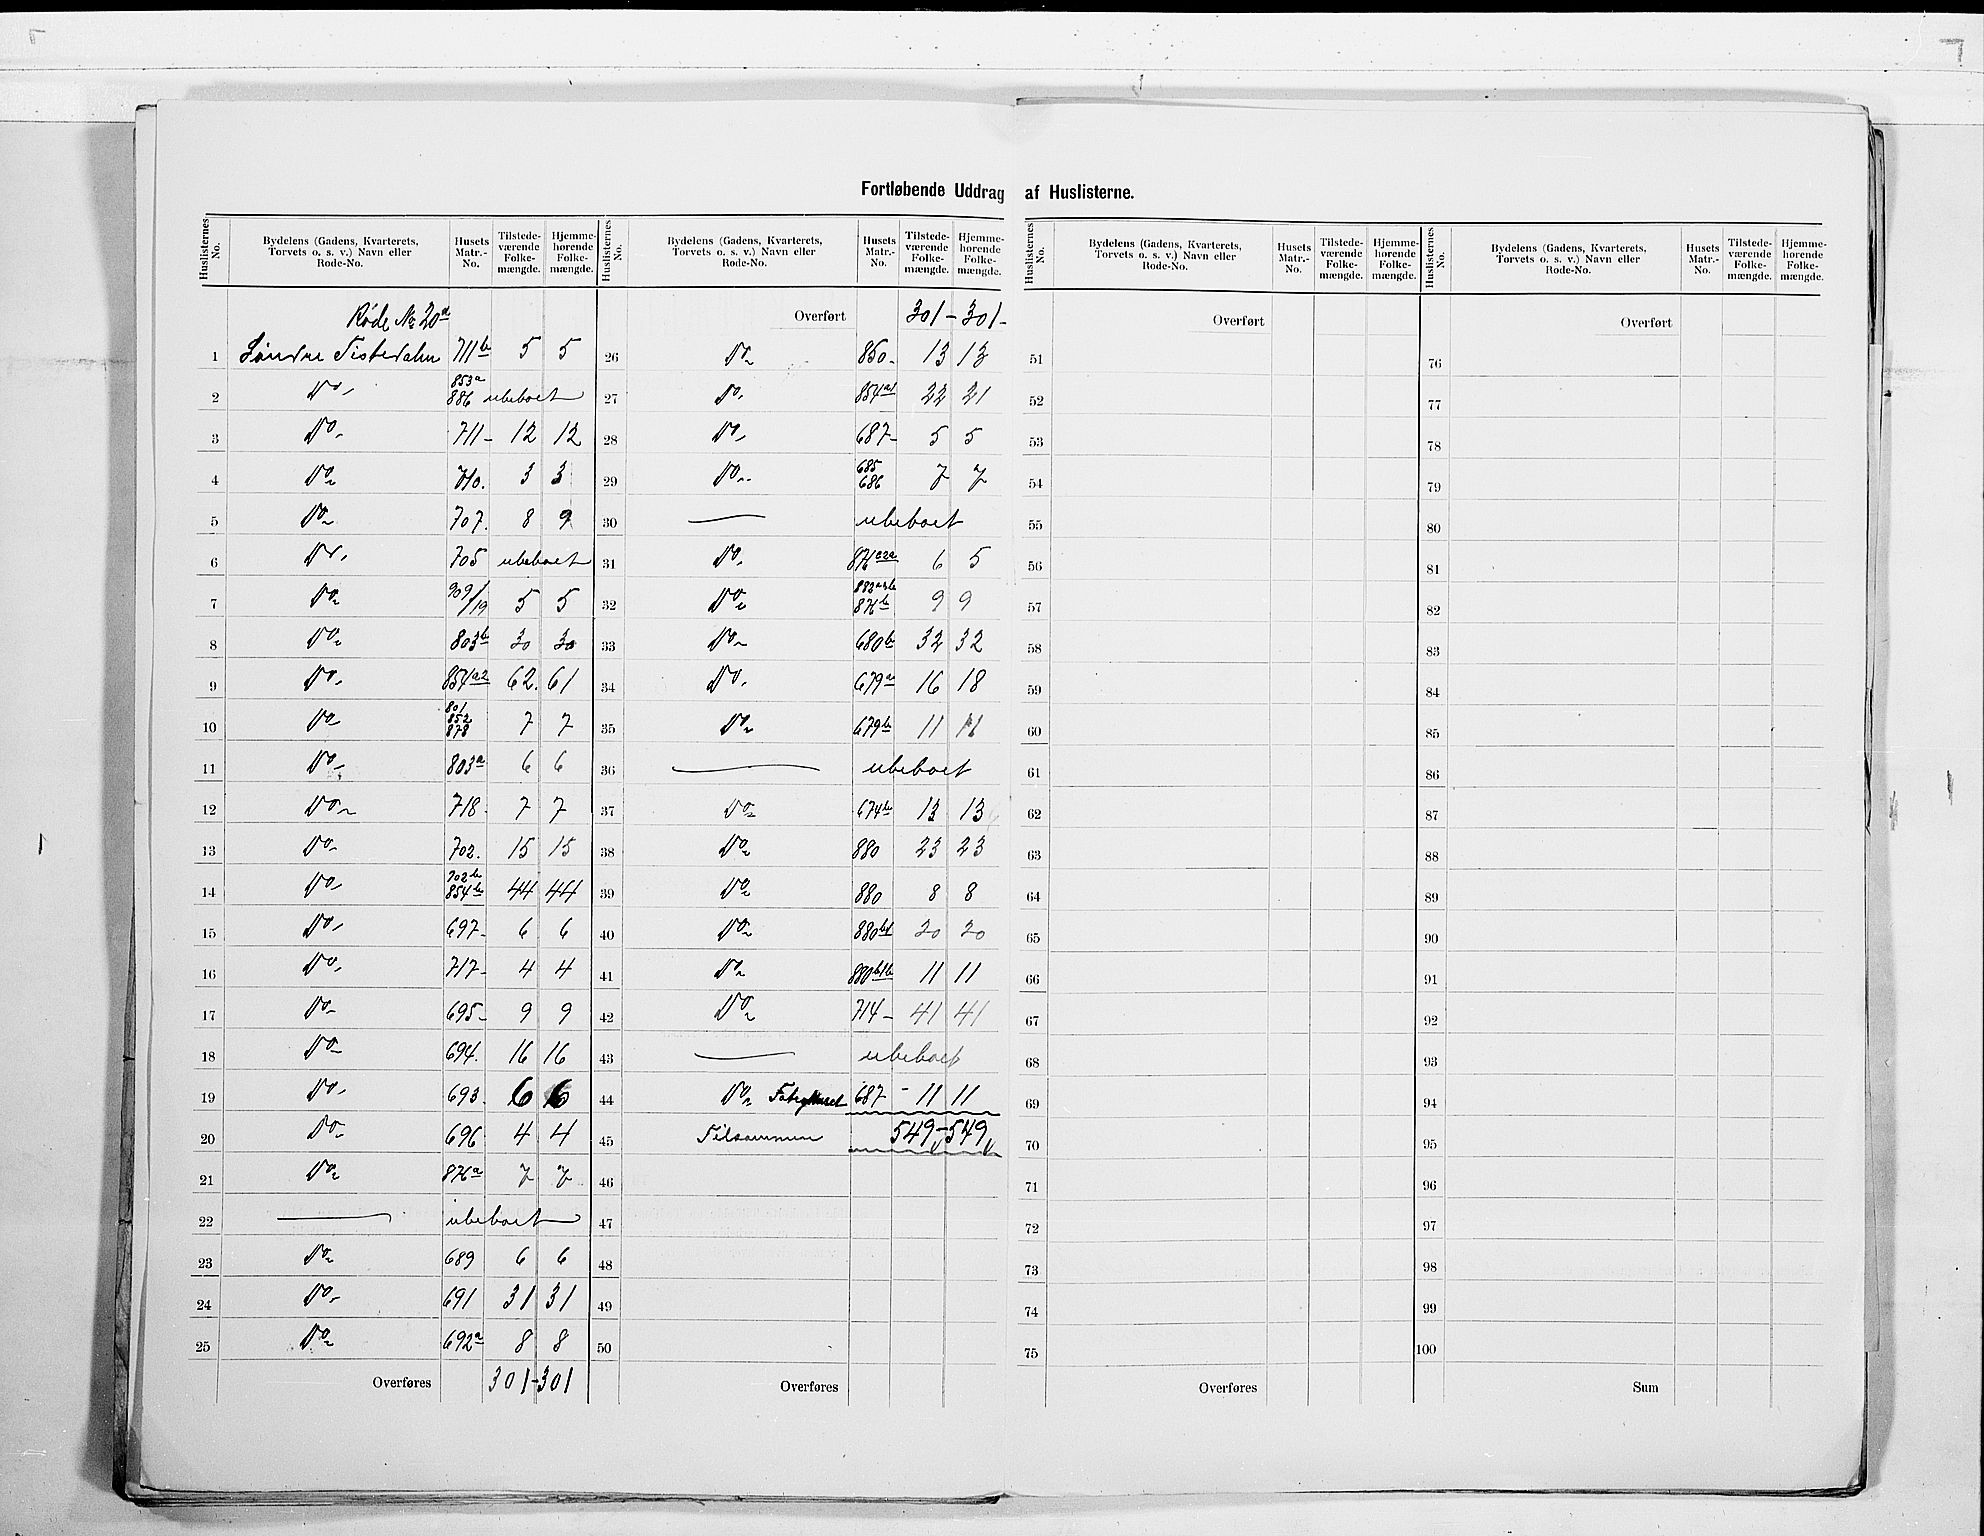 Fortløbende Uddrag af Huslisterne.
Huslisternes No. | Bydelens (Gadens, Kvarterets, Torvets o. s. v.) Navn eller Rode-No. | Husets Matr.-No. | Tilstedeværende Folkemængde. | Hjemmehørende Folkemængde.
Rode No 20a
1 Søndre Tistedalen 711b 5 5
2 Do 853a 886 ubeboet
3 Do 711 12 12
4 Do 710. 3 3
5 Do 707. 8 9
6 Do 705 ubeboet
7 Do 709/19 5 5
8 Do 803b 30 30
9 Do 854a2 62. 61
10 Do 801 852 878 7 7
11 Do 803a 6 6
12 Do 718 7 7
13 Do 702. 15 15
14 Do 702b 854b 44 44
15 Do 697 6 6
16 Do 717 4 4
17 Do 695 9 9
18 Do 694. 16 16
19 Do 693. 6 6
20 Do 696 4 4
21 Do 876a 7 7
22 — ubeboet
23 Do 689 6 6
24 Do 691 31 31
25 Do 692a 8 8
Overføres 301 - 301
Huslisternes No. | Bydelens (Gadens, Kvarterets, Torvets o. s. v.) Navn eller Rode-No. | Husets Matr.-No. | Tilstedeværende Folkemængde. | Hjemmehørende Folkemængde.
Overført 301 - 301 -
26 Do 850 13 13
27 Do 854a1 22 21
28 Do 687 5 5
29 Do 685 686 7 7
30 — ubeboet
31 Do 6 5
32 Do 876b 9 9
33 Do 680b 32 32
34 Do 679a 16 18
35 Do 679b 11 11
36 — ubeboet
37 Do 674b 13 13
38 Do 880 23 23
39 Do 880 8 8
40 Do 880b1 20 20
41 Do 880b1b 11 11
42 Do 714 - 41 41
43 — ubeboet
44 Do 687 - 11 11
45 Tilsammen 549 - 549
46
47
48
49
50
Overføres
Huslisternes No. | Bydelens (Gadens, Kvarterets, Torvets o. s. v.) Navn eller Rode-No. | Husets Matr.-No. | Tilstedeværende Folkemængde. | Hjemmehørende Folkemængde.
Overført
51
52
53
54
55
56
57
58
59
60
61
62
63
64
65
66
67
68
69
70
71
72
73
74
75
Overføres
Huslisternes No. | Bydelens (Gadens, Kvarterets, Torvets o. s. v.) Navn eller Rode-No. | Husets Matr.-No. | Tilstedeværende Folkemængde. | Hjemmehørende Folkemængde.
Overført
76
77
78
79
80
81
82
83
84
85
86
87
88
89
90
91
92
93
94
95
96
97
98
99
100
Sum